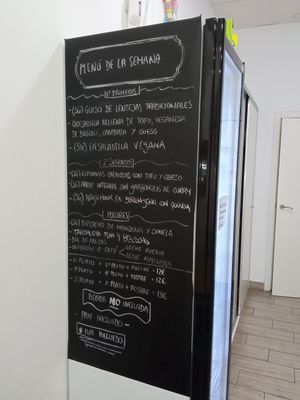 MENÚ DE LA SEMANA
1º PRIMEROS
- (SG) GUISO DE LENTEJAS TRADICIONALES
- QUESADILLA RELLENA DE TOFU, VEGANESA
DE BRÓCOLI, CALABAZA Y QUESO
- (SG) ENSALADILLA VEGANA
2º SEGUNDOS
- (SG) ESPINACAS CREMOSAS CON TOFU Y QUESO
- (SG) ARROZ INTEGRAL CON GARBANZOS AL CURRY
- (SG) CON QUINOA
POSTRES
- (SG) BIZCOCHO DE MANZANA Y CANELA
- TARTALETA
- BOL DE FRUTAS
- INFUSIÓN O CAFÉ LECHE AVENA
LECHE ALMENDRAS
1º PLATO + 2º PLATO + POSTRE - 12€
1º PLATO + 1º PLATO + POSTRE - 12€
2º PLATO + 2º PLATO + POSTRE - 13€
BEBIDA NO INCLUIDA
- PAN INCLUIDO -
* IVA INCLUIDO